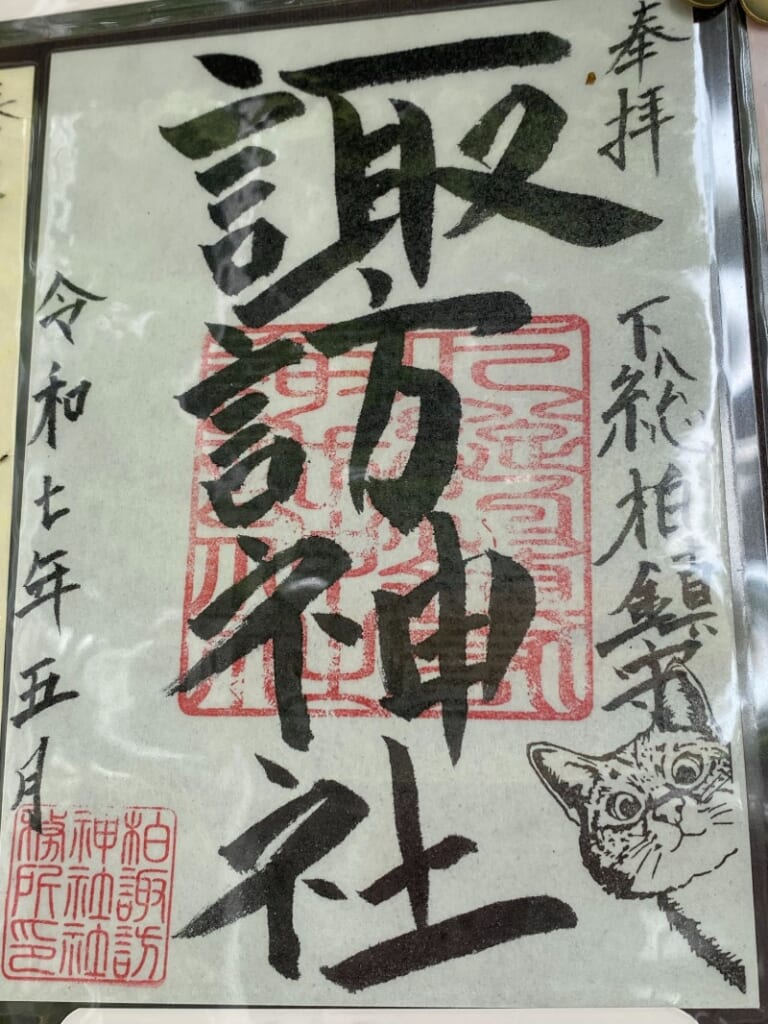 奉拝
下総柏鎮守
諏訪神社
令和七年五月
柏諏訪
神社社
務所印